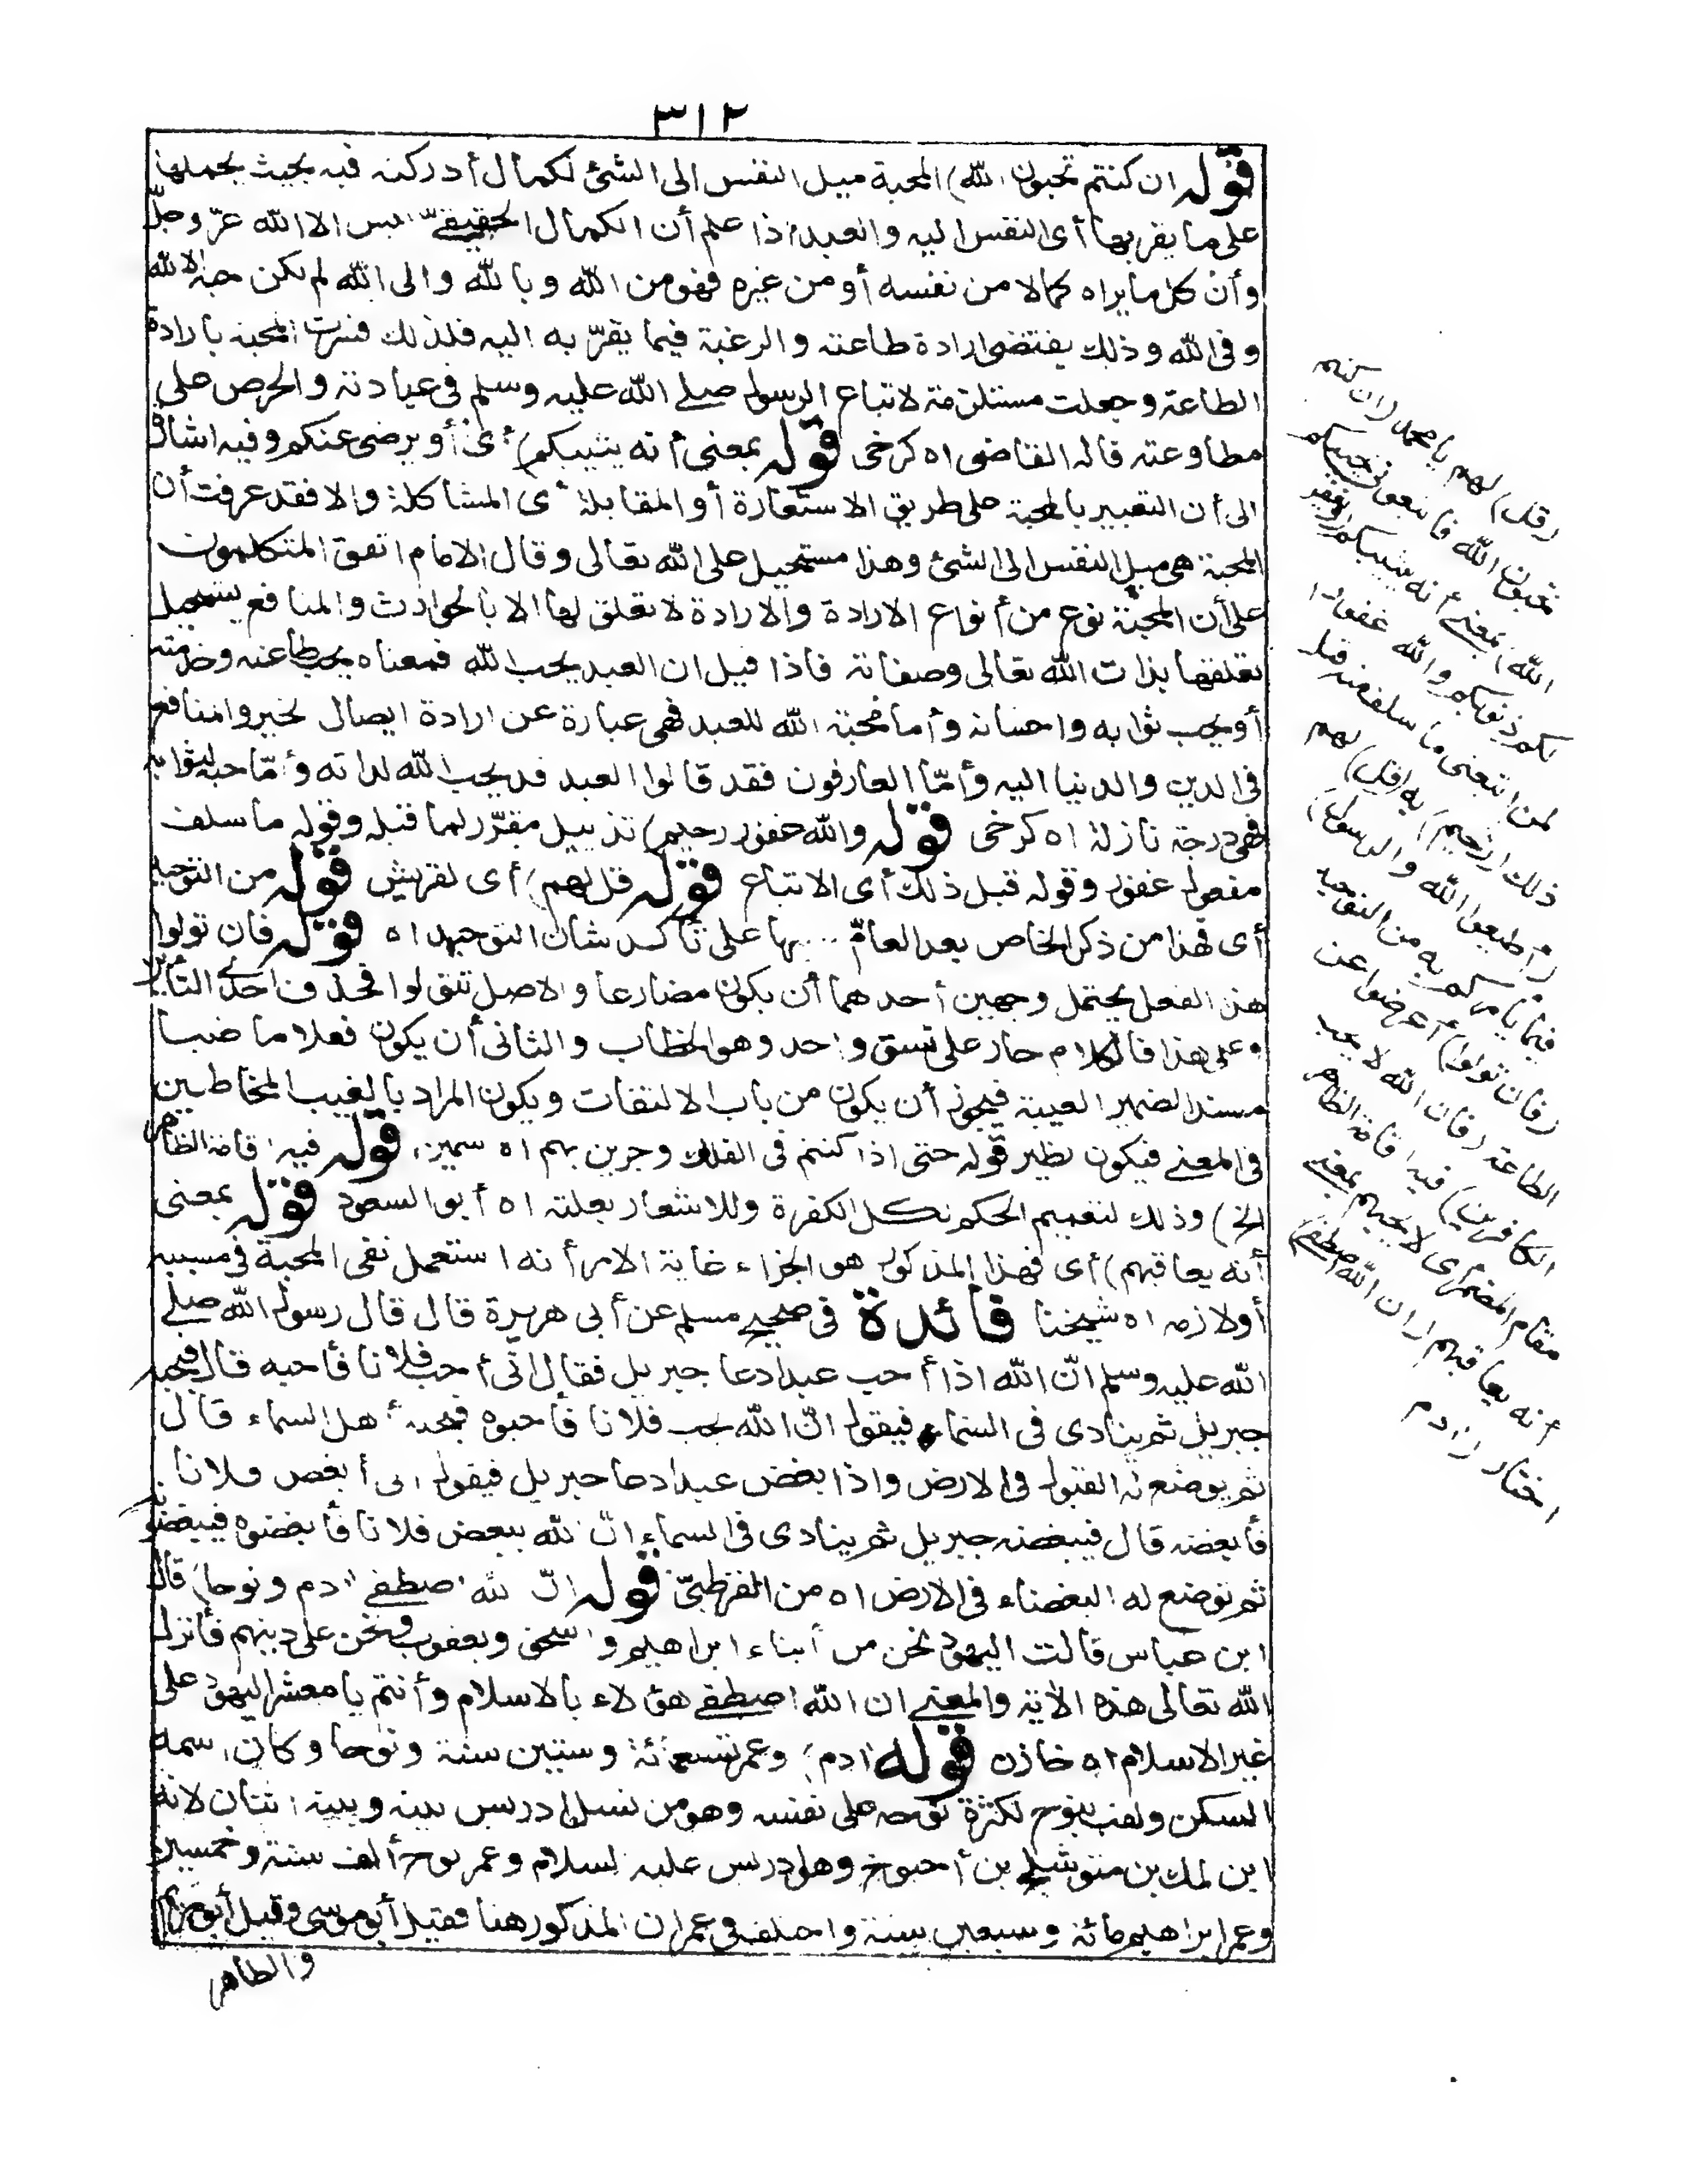 ٣١٢
قوله ان كنتم تحبون الله) المحبة ميل النفس الى الشئ لكمال أدركته فيه بحيث يحملها
على ما يقربها أى النفس اليه والعبد اذا علم أن الكمال الحقيقى ليس الا الله عزّ وجلّ
وأنّ كل ما يراه كمالا من نفسه أو من غيره فهو من الله وبالله والى الله لم يكن حبه الا لله
وفى الله وذلك يقتضى ارادة طاعته والرغبة فيما يقرّبه اليه فلذلك فسرت المحبة بارادة
الطاعة وجعلت مستلزمة لاتباع الرسول صلى الله عليه وسلم فى عبادته والحرص على
مطاوعته قاله القاضى اه كرخى قوله بمعنى أنه يثيبكم) أى أو يرضى عنكم وفيه اشارة
الى أن التعبير بالمحبة على طريق الاستعارة أو المقابلة أى المشاكلة والا فقد عرفت أن
المحبة هى ميل النفس الى الشئ وهذا مستحيل على الله تعالى وقال الامام اتفق المتكلمون
على أن المحبة نوع من أنواع الارادة والارادة لا تعلق لها الا بالحوادث والمنافع يستحيل
تعلقها بذات الله تعالى وصفاته فاذا قيل ان العبد يحب الله فمعناه يحب طاعته وخدمته
أو يحب ثوابه واحسانه وأما محبة الله للعبد فهى عبارة عن ارادة ايصال الخير والمنافع
فى الدين والدنيا اليه وأمّا العارفون فقد قالوا العبد قد يحب الله لذاته وأمّا حبه لثوابه
فهى درجة نازلة اه كرخى قوله والله غفور رحيم) تذييل مقرّر لما قبله وقوله ما سلف
مفعول غفور وقوله قبل ذلك أى الاتباع قوله قل لهم) أى لقريش قوله من التوحيد
أى فهذا من ذكر الخاص بعد العامّ ... على تأكد شان التوحيد اه قوله فان تولوا
هذا الفعل يحتمل وجهين أحدهما أن يكون مضارعا والاصل تتولوا فحذف احدى التاءين
وعلى هذا فالكلام جار على نسق واحد وهو الخطاب والثانى أن يكون فعلا ماضيا
مسندا لضمير الغيبة فيجوز أن يكون من باب الالتفات ويكون المراد بالغيب المخاطبين
فى المعنى فيكون نظير قوله حتى اذا كنتم فى الفلك وجرين بهم اه سمين قوله فيه اقامة الظاهر
الخ) وذلك لتعميم الحكم لكل الكفرة وللاشعار بعلته اه أبو السعود قوله بمعنى
أنه يعاقبهم) أى فهذا المذكور هو الجزاء غاية الامر أنه استعمل نفى المحبة فى مسببه
أو لازمه اه شيخنا فائدة فى صحيح مسلم عن أبى هريرة قال قال رسول الله صلى
الله عليه وسلم انّ الله اذا أحب عبدا دعا جبريل فقال انّى أحب فلانا فأحبه قال فيحبه
جبريل ثم ينادى فى السماء فيقول انّ الله يحب فلانا فأحبوه فيحبه أهل السماء قال
ثم يوضع له القبول فى الارض واذا بغض عبدا دعا جبريل فيقول انى أبغض فلانا
فأبغضه قال فيبغضه جبريل ثم ينادى فى السماء انّ الله يبغض فلانا فأبغضوه فيبغضونه
ثم توضع له البغضاء فى الارض اه من القرطبىّ قوله انّ الله اصطفى ادم ونوحا) قال
ابن عباس قالت اليهود نحن من أبناء ابراهيم واسحق ويعقوب ونحن على دينهم فأنزل
الله تعالى هذه الآية والمعنى ان الله اصطفى هؤلاء بالاسلام وأنتم يا معشر اليهود على
غير الاسلام اه خازن قوله ادم) وعمر تسعمائة وستين سنة ونوحا وكان اسمه
السكن ولقب بنوح لكثرة نوحه على نفسه وهو من نسل ادريس بينه وبينه اثنان لانه
ابن لمك بن متوشلخ بن أخنوخ وهو ادريس عليه السلام وعمر نوح ألف سنة وخمسين
وعمر ابراهيم مائة وسبعين سنة واختلف فى عمران المذكور هنا فقيل أبو موسى وقيل أبو مريم
والظاهر
(قل) لهم يا محمد (ان كنتم
تحبون الله فاتبعونى يحببكم
الله) بمعنى أنه يثيبكم (ويغفر
لكم ذنوبكم والله غفور)
لمن اتبعنى ما سلف منه قبل
ذلك (رحيم) به (قل) لهم
(أطيعوا الله والرسول)
فيما يأمركم به من التوحيد
(فان تولوا) أعرضوا عن
الطاعة (فان الله لا يحب
الكافرين) فيه اقامة الظاهر
مقام المضمر أى لا يحبهم بمعنى
أنه يعاقبهم (ان الله اصطفى)
اختار (ادم